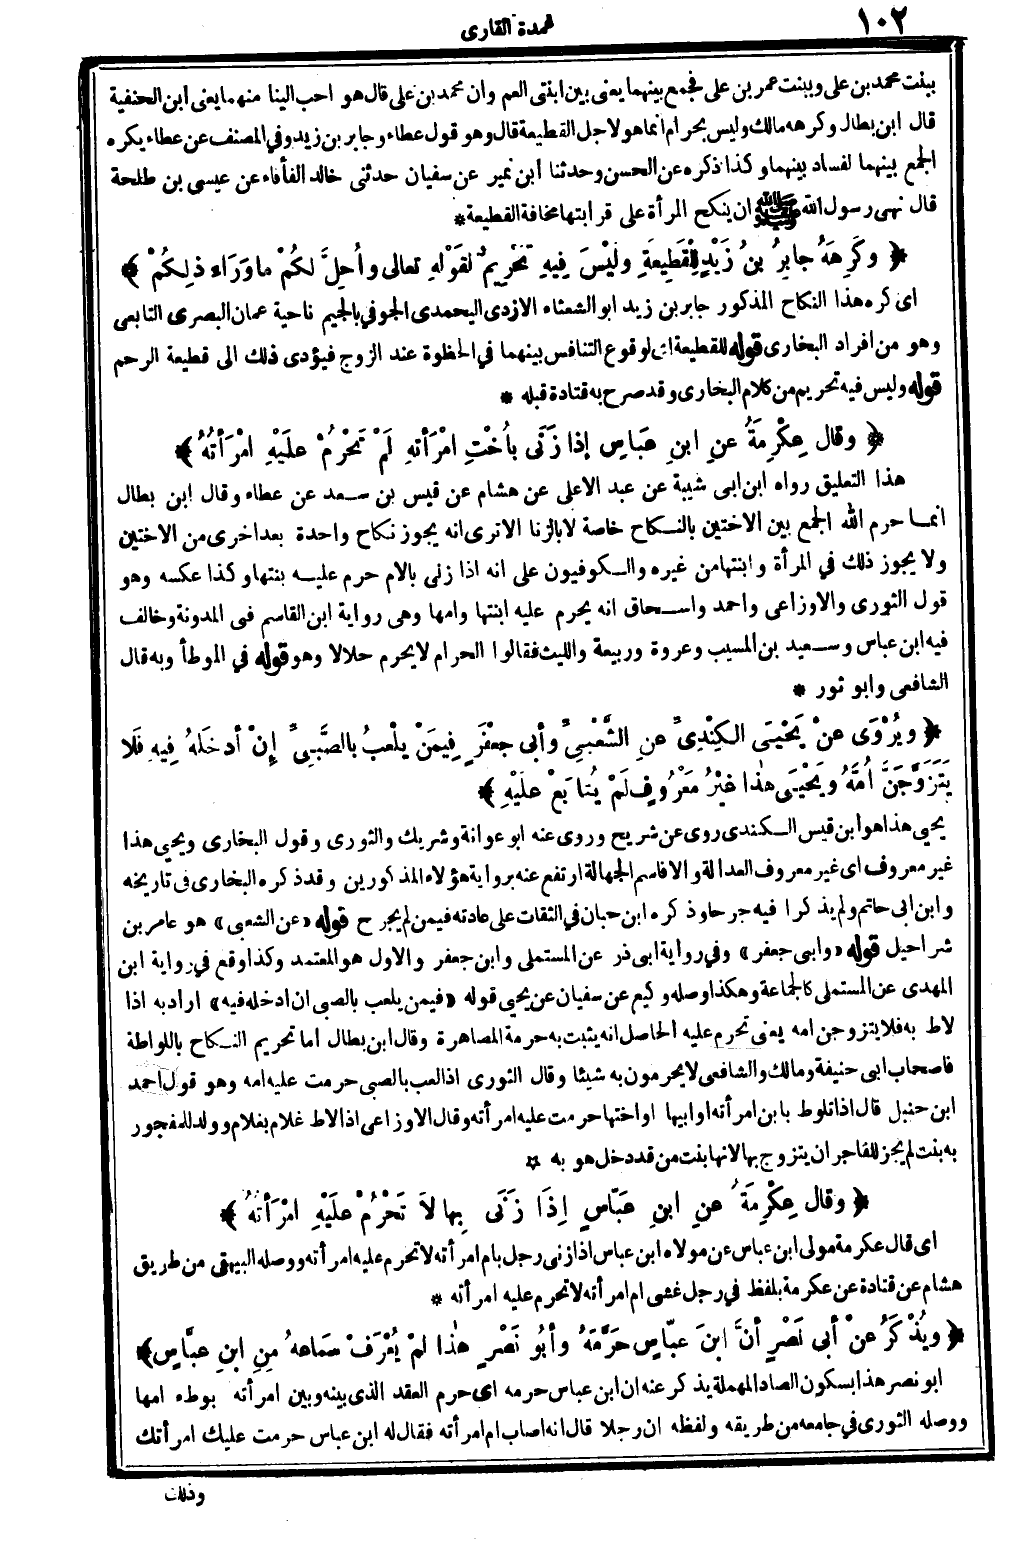 ١٠٢
عمدة القارى
ببنت محمد بن على وببنت عمر بن على فجمع بينهما يعنى بين ابنتى العم وان محمد بن على قال هو احب الينا منهما يعنى ابن الحنفية
قال ابن بطال وكرهه مالك وليس بحرام انما هو لاجل القطيعة قال وهو قول عطاء وجابر بن زيد وفي المصنف عن عطاء يكره
الجمع بينهما لفساد بينهما وكذا ذكره عن الحسن وحدثنا ابن نمير عن سفيان حدثنى خالد الفأفاء عن عيسى بن طلحة
قال نهى رسول الله ﷺ ان ينكح المرأة على قرابتها مخافة القطيعة *
﴿ وكَرِهَهُ جابِرُ بنُ زَيْدٍ لِلْقَطِيعَةِ ولَيْسَ فِيهِ تَحْرِيمٌ لقَوْلِهِ تعالى وأُحِلَّ لكُمْ ماورَاء ذلِكُمْ ﴾
اى كره هذا النكاح المذكور جابر بن زيد ابو الشعثاء الازدى اليحمدى الجوفي بالجيم ناحية عمان البصرى التابعى
وهو من افراد البخارى قوله للقطيعة اى لوقوع التنافس بينهما في الحظوة عند الزوج فيؤدى ذلك الى قطيعة الرحم
قوله وليس فيه تحريم من كلام البخارى وقد صرح به قتادة قبله *
﴿ وقال عِكْرِمَةُ عنِ ابنِ عبَّاسٍ إذا زَنَى بأُخْتِ امْرَأتِهِ لَمْ تَحْرُمْ علَيْهِ امْرَأتُهُ ﴾
هذا التعليق رواه ابن ابى شيبة عن عبد الاعلى عن هشام عن قيس بن سعد عن عطاء وقال ابن بطال
انما حرم الله الجمع بين الاختين بالنكاح خاصة لا بالزنا الا ترى انه يجوز نكاح واحدة بعد اخرى من الاختين
ولا يجوز ذلك في المرأة وابنتها من غيره والكوفيون على انه اذا زنى بالام حرم عليه بنتها وكذا عكسه وهو
قول الثورى والاوزاعى واحمد واسحاق انه يحرم عليه ابنتها وامها وهى رواية ابن القاسم فى المدونة وخالف
فيه ابن عباس وسعيد بن المسيب وعروة وربيعة والليث فقالوا الحرام لا يحرم حلالا وهو قوله في الموطأ وبه قال
الشافعى وابو ثور *
﴿ ويُرْوَى عنْ يَحْيَى الكِنْدِىِّ عنِ الشَّعْبِىِّ وأبى جعْفَرٍ فِيمَنْ يلْعبُ بالصَّبِىِّ إنْ أدخَلهُ فِيهِ فَلَا
يَتَزَوَّجَنَّ أُمَّهُ ويَحْيَى هٰذا غيْرُ مَعْرُوفٍ لَمْ يُتابَعْ علَيْهِ ﴾
يحيى هذا هو ابن قيس الكندى روى عن شريح وروى عنه ابو عوانة وشريك والثورى وقول البخارى ويحيى هذا
غير معروف اى غير معروف العدالة والا فاسم الجهالة ارتفع عنه برواية هؤلاء المذكورين وقد ذكره البخارى فى تاريخه
وابن ابى حاتم ولم يذكرا فيه جرحا وذكره ابن حبان في الثقات على عادته فيمن لم يجرح قوله «عن الشعبى» هو عامر بن
شراحيل قوله «وابى جعفر» وفي رواية ابى ذر عن المستملى وابن جعفر والاول هو المعتمد وكذا وقع في رواية ابن
المهدى عن المستملى كالجماعة وهكذا وصله وكيع عن سفيان عن يحيى قوله «فيمن يلعب بالصبى ان ادخله فيه» اراد به اذا
لاط به فلا يتزوجن امه يعنى تحرم عليه الحاصل انه يثبت به حرمة المصاهرة وقال ابن بطال اما تحريم النكاح باللواطة
فاصحاب ابى حنيفة ومالك والشافعى لا يحرمون به شيئا وقال الثورى اذا لعب بالصبى حرمت عليه امه وهو قول احمد
ابن حنبل قال اذا تلوط بابن امرأته او ابيها او اختها حرمت عليه امرأته وقال الاوزاعى اذا لاط غلام بغلام وولد للمفجور
به بنت لم يجز للفاجر ان يتزوج بها لانها بنت من قد دخل هو به ☆
﴿ وقال عِكْرِمَةُ عنِ ابنِ عَبّاسٍ إِذَا زَنَى بِها لاَ تَحْرُمْ علَيْهِ امْرَأتُهُ ﴾
اى قال عكرمة مولى ابن عباس عن مولاه ابن عباس اذا زنى رجل بام امرأته لا تحرم عليه امرأته ووصله البيهقى من طريق
هشام عن قتادة عن عكرمة بلفظ في رجل غشى ام امرأته لا تحرم عليه امرأته *
﴿ ويُذْكَرُ عنْ أبى نَصْرٍ أنَّ ابنَ عبّاسٍ حَرَّمَهُ وأبُو نَصْرٍ هٰذا لمْ يُعْرَفْ سَماعهُ مِنِ ابنِ عبَّاسٍ ﴾
ابو نصر هذا بسكون الصاد المهملة يذكر عنه ان ابن عباس حرمه اى حرم العقد الذى بينه وبين امرأته بوطء امها
ووصله الثورى في جامعه من طريقه ولفظه ان رجلا قال انه اصاب ام امرأته فقال له ابن عباس حرمت عليك امرأتك
وذلك